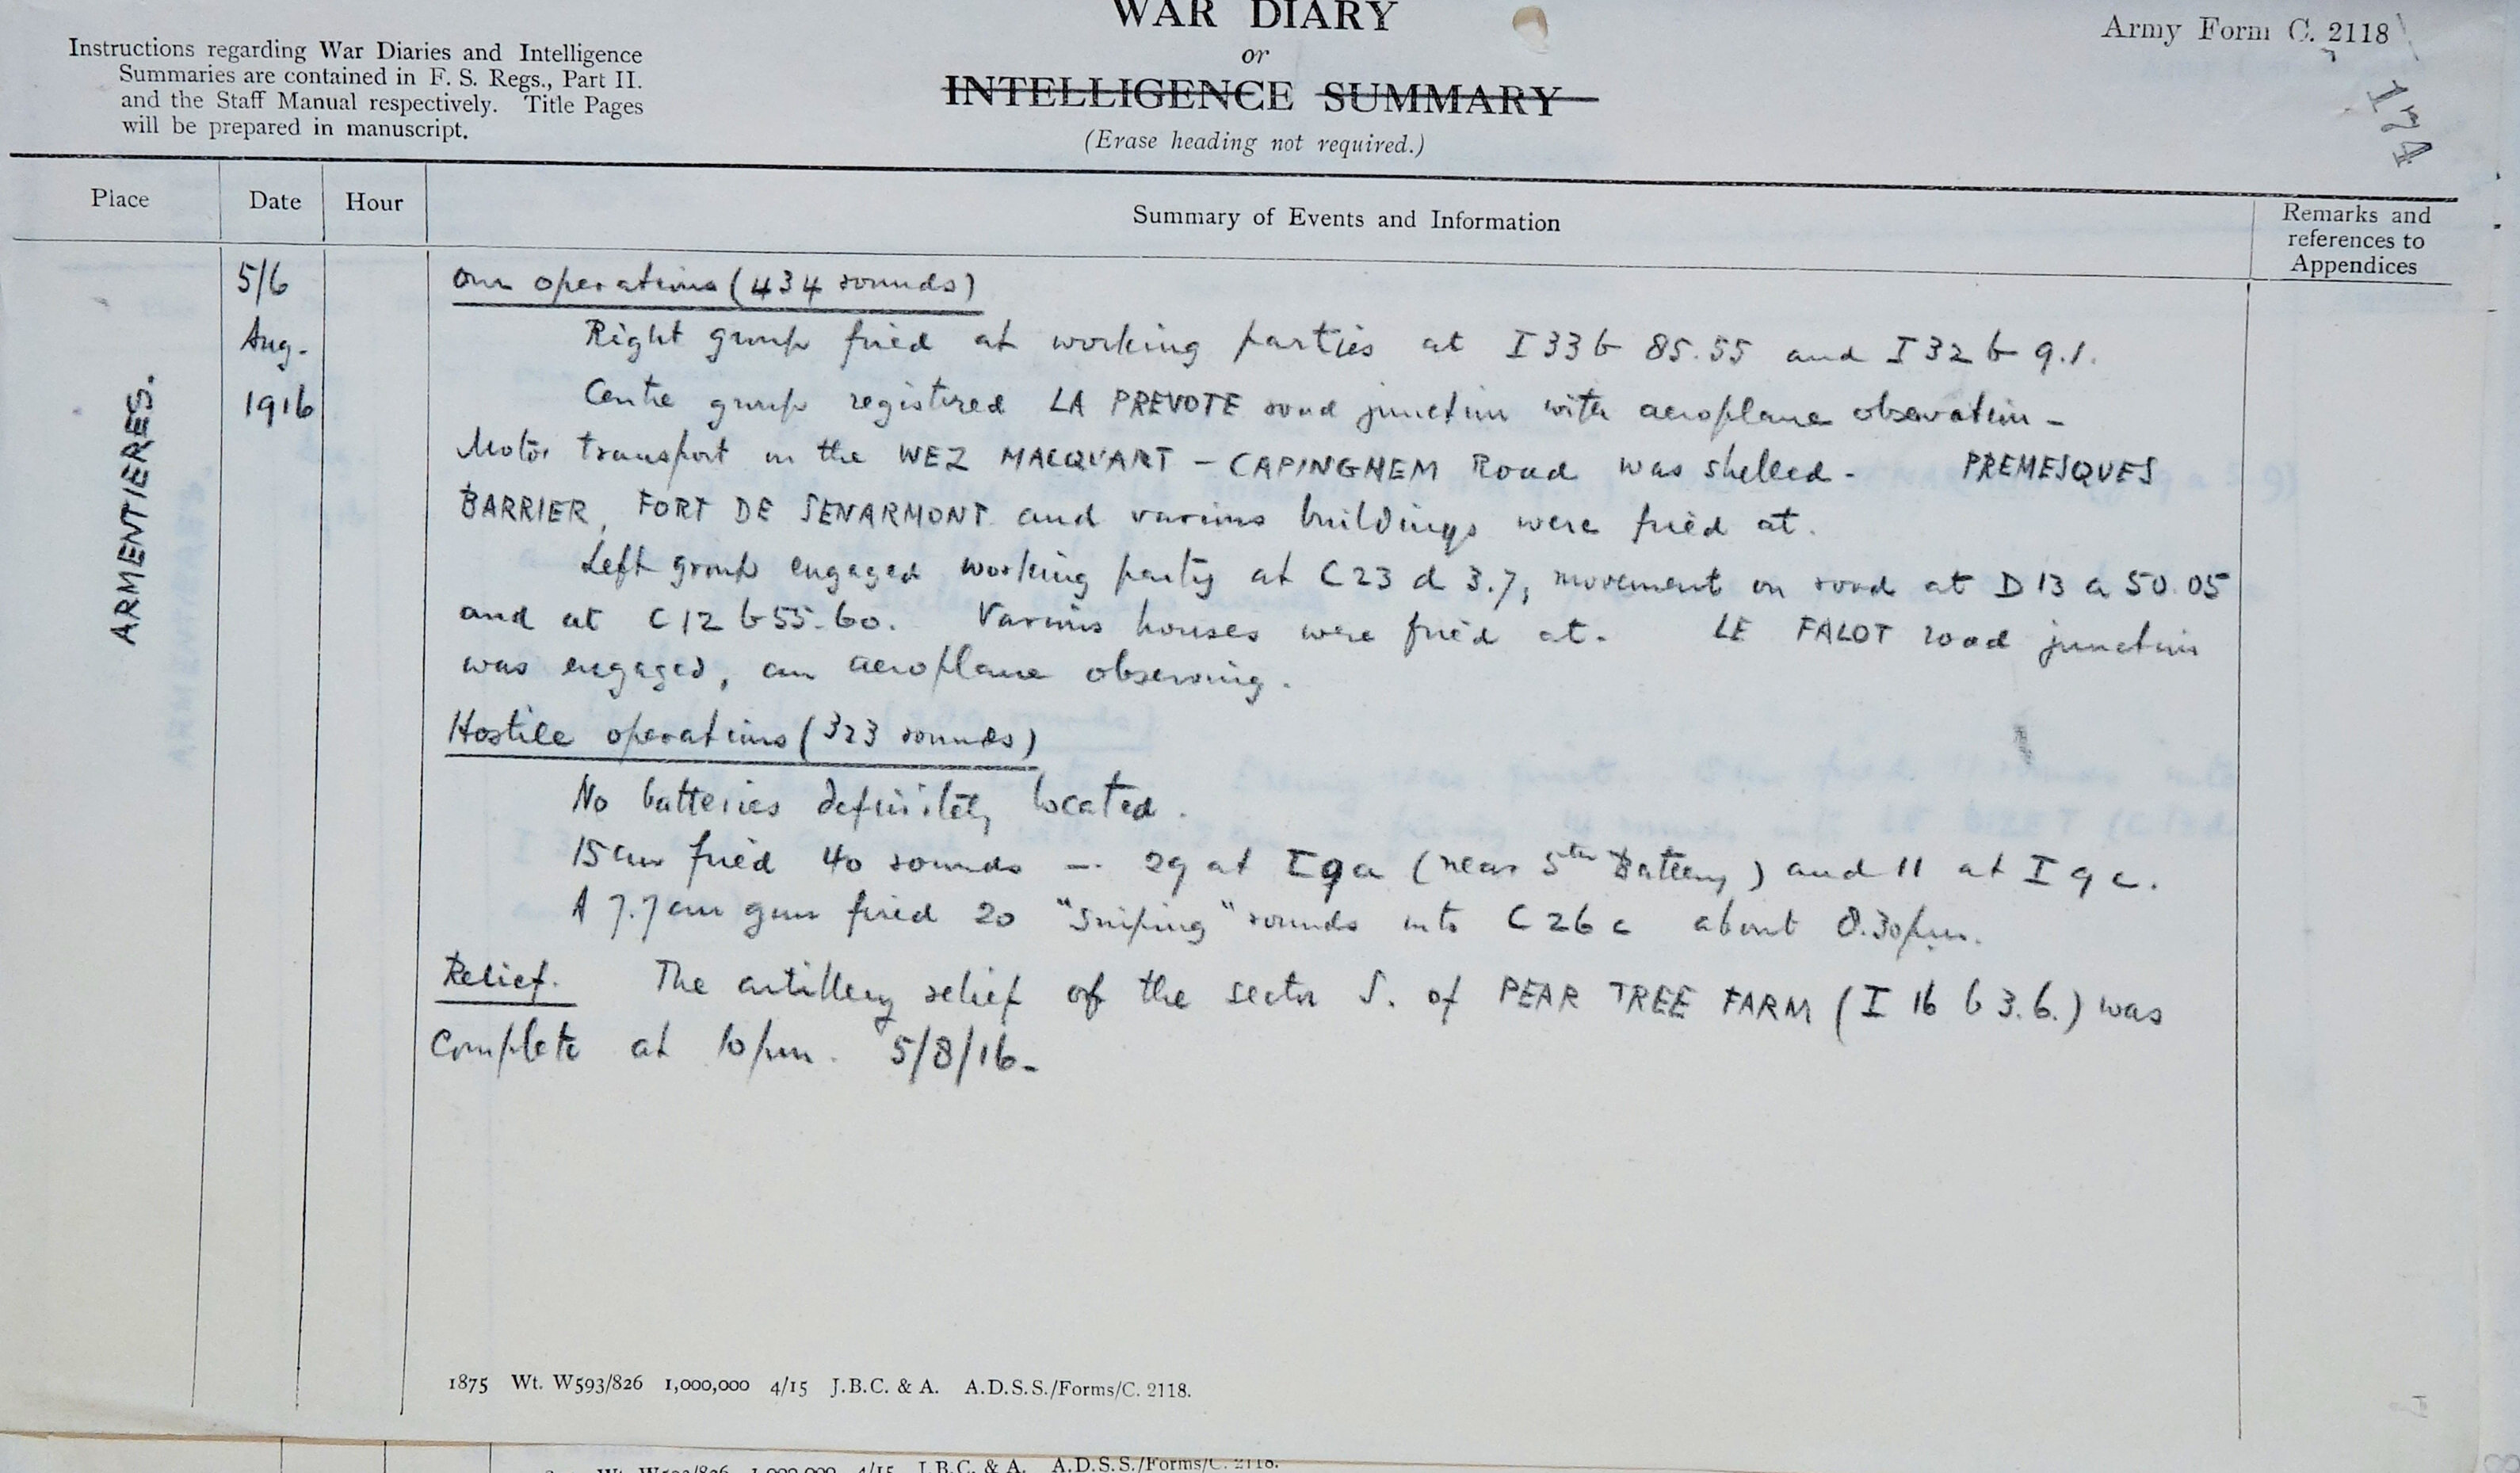 WAR DIARY
Army Form C. 2118
or
Instructions regarding War Diaries and Intelligence
Summaries are contained in F. S. Regs., Part II.
and the Staff Manual respectively. Title Pages
will be prepared in manuscript.
INTELLIGENCE SUMMARY
(Erase heading not required.)
174
Place
Date
Hour
Summary of Events and Information
Remarks and
references to
Appendices
ARMENTIERES.
5/6
Aug.
1916
Our operations (434 rounds)
Right group fired at working parties at I 33 b 85.55 and I 32 b 9.1.
Centre group registered LA PREVOTE road junction with aeroplane observation -
Motor transport on the WEZ MACQUART - CAPINGHEM Road was shelled - PREMESQUES
BARRIER, FORT DE SENARMONT and various buildings were fired at.
Left group engaged working party at C 23 d 3.7, movement on road at D 13 a 50.05
and at C 12 b 55-60. Various houses were fired at. LE FALOT road junction
was engaged, an aeroplane observing.
Hostile operations (323 rounds)
No batteries definitely located.
15 cm fired 40 rounds - 29 at I 9 a (near 5th Battery) and 11 at I 9 c.
A 7.7 cm gun fired 20 "Sniping" rounds into C 26 c about 8.30 pm.
Relief. The artillery relief of the sector S. of PEAR TREE FARM (I 16 b 3.6.) was
complete at 10 pm. 5/8/16-
1875 Wt. W593/826 1,000,000 4/15 J.B.C. & A. A.D.S.S./Forms/C. 2118.
Wt. W593/826 1,000,000 4/15 J.B.C. & A. A.D.S.S./Forms/C. 2118.